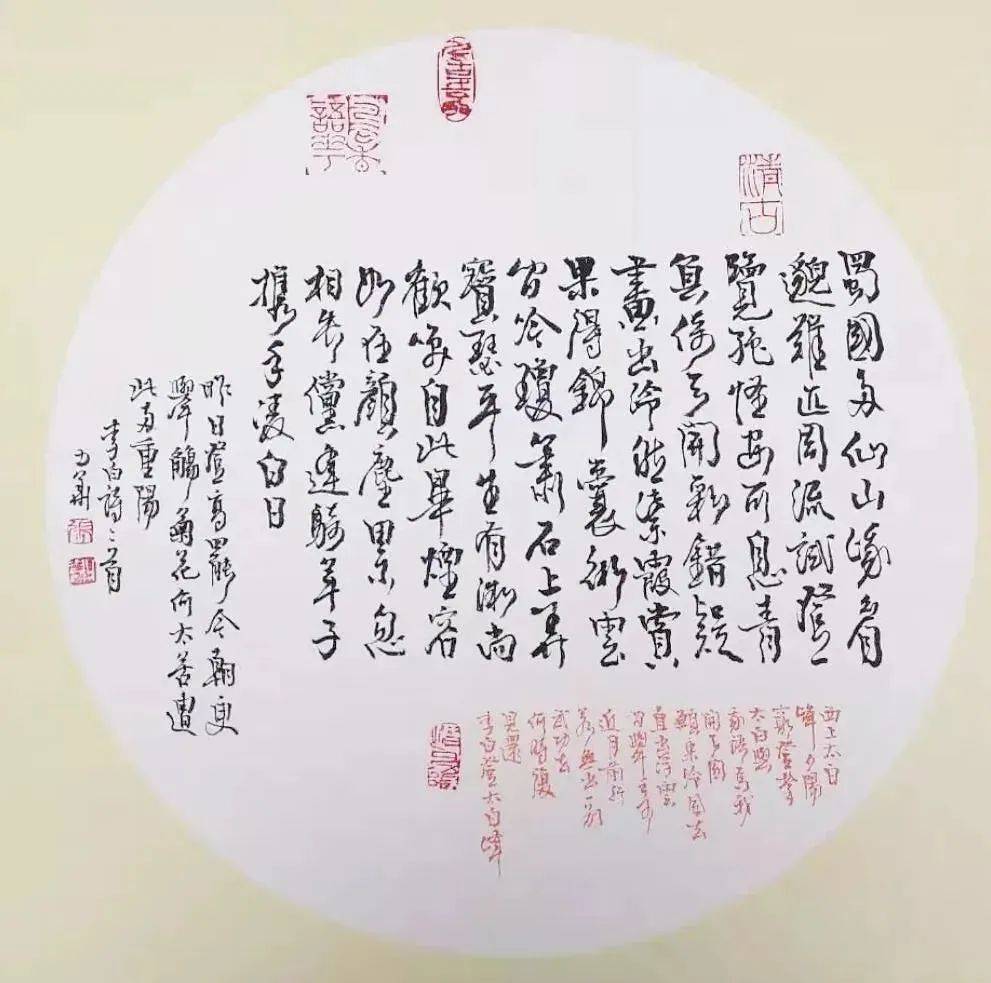 清古
蜀國多仙山峨眉
邈難匹周流試登
覽絕怪安可息青
冥倚天開彩錯疑
畫出泠然紫霞賞
果得錦囊術雲
間吟瓊簫石上弄
寶瑟平生有微尚
歡笑自此畢煙容
如在顏塵累忽
相失儻逢騎羊子
攜手凌白日
昨日登高罷今朝更
舉觴菊花何太苦遭
此兩重陽
李白詩二首
西上太白
峰夕陽
窮登攀
太白與
我語為我
開天關
願乘泠風去
直出浮雲
間舉手可
近月前行
若無山一別
武功去
何時復
見還
李白登太白峰